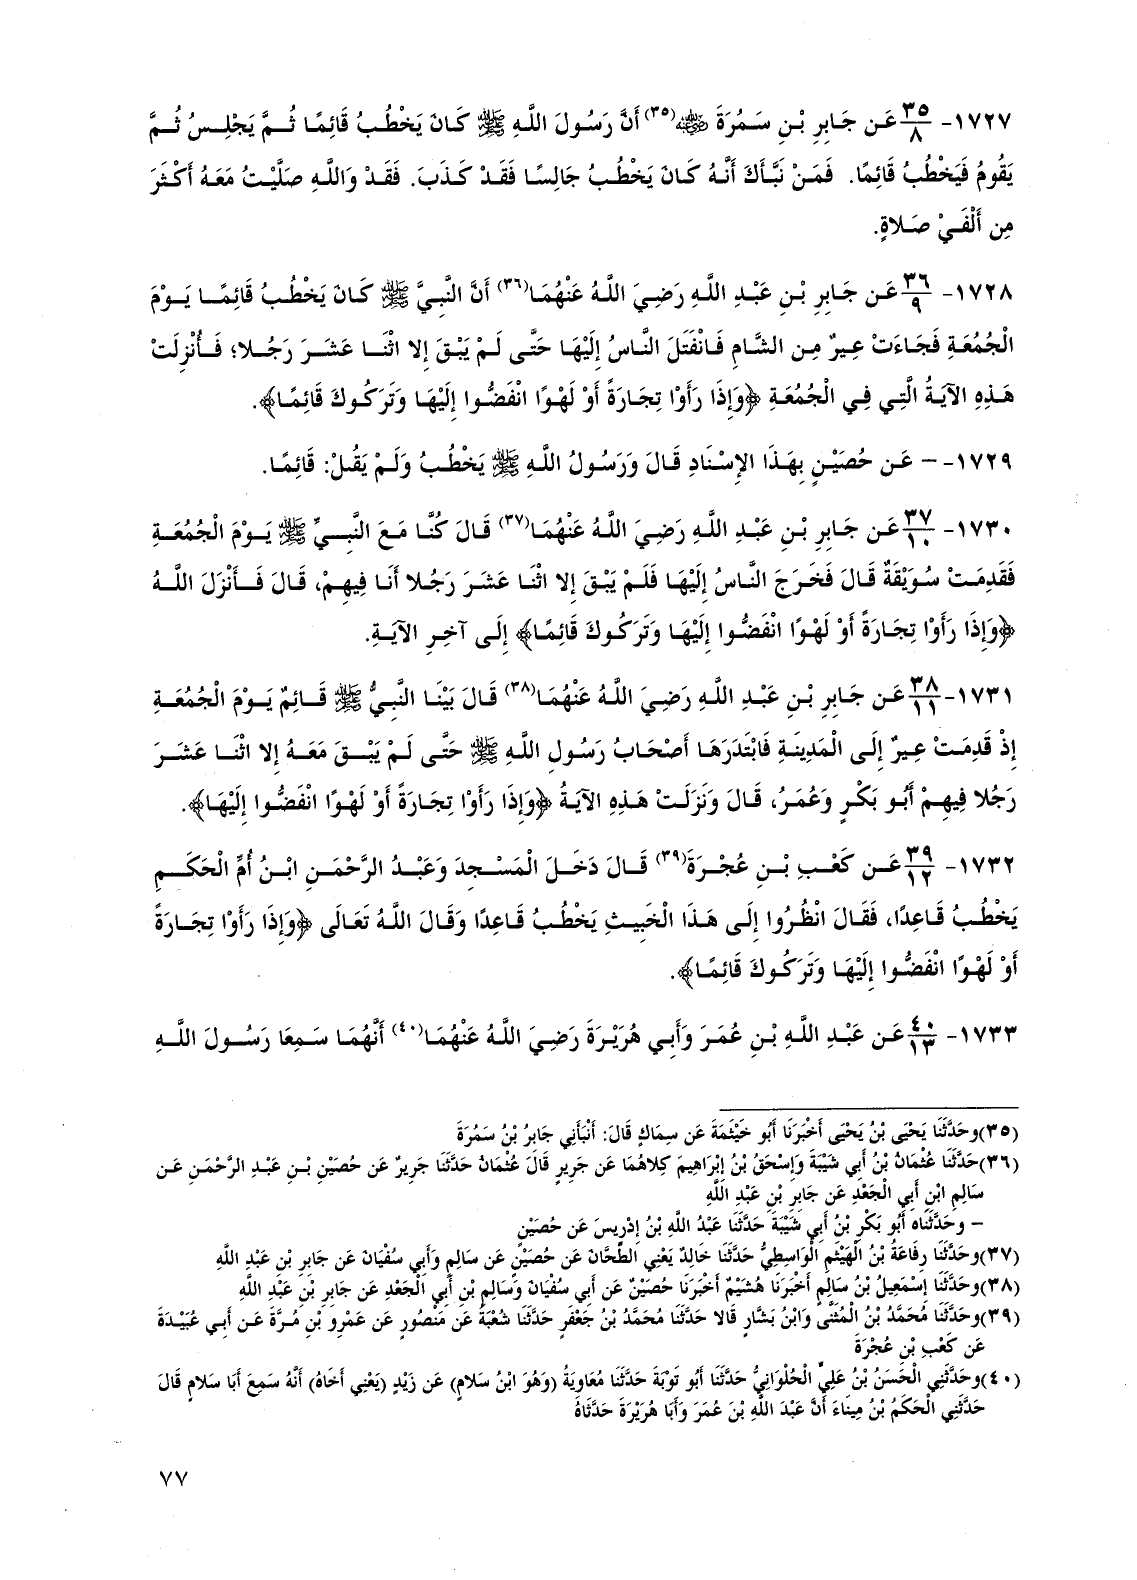 ١٧٢٧- ٣٥/٨ عَن جَابِرِ بْنِ سَمُرَةَ ﷺ(٣٥) أَنَّ رَسُولَ اللَّهِ ﷺ كَانَ يَخْطُبُ قَائِمًا ثُمَّ يَجْلِسُ ثُمَّ
يَقُومُ فَيَخْطُبُ قَائِمًا. فَمَنْ نَبَّأَكَ أَنَّهُ كَانَ يَخْطُبُ جَالِسًا فَقَدْ كَذَبَ. فَقَدْ وَاللَّهِ صَلَّيْتُ مَعَهُ أَكْثَرَ
مِن أَلْفَيْ صَلاةٍ.
١٧٢٨- ٣٦/٩ عَن جَابِرِ بْنِ عَبْدِ اللَّهِ رَضِيَ اللَّهُ عَنْهُمَا(٣٦) أَنَّ النَّبِيَّ ﷺ كَانَ يَخْطُبُ قَائِمًا يَوْمَ
الْجُمُعَةِ فَجَاءَتْ عِيرٌ مِن الشَّامِ فَانْفَتَلَ النَّاسُ إِلَيْهَا حَتَّى لَمْ يَبْقَ إِلا اثْنَا عَشَرَ رَجُلا؛ فَأُنْزِلَتْ
هَذِهِ الآيَةُ الَّتِي فِي الْجُمُعَةِ ﴿وَإِذَا رَأَوْا تِجَارَةً أَوْ لَهْوًا انْفَضُّوا إِلَيْهَا وَتَرَكُوكَ قَائِمًا﴾.
١٧٢٩- – عَن حُصَيْنٍ بِهَذَا الإِسْنَادِ قَالَ وَرَسُولُ اللَّهِ ﷺ يَخْطُبُ وَلَمْ يَقُلْ: قَائِمًا.
١٧٣٠- ٣٧/١٠ عَن جَابِرِ بْنِ عَبْدِ اللَّهِ رَضِيَ اللَّهُ عَنْهُمَا(٣٧) قَالَ كُنَّا مَعَ النَّبِيِّ ﷺ يَوْمَ الْجُمُعَةِ
فَقَدِمَتْ سُوَيْقَةٌ قَالَ فَخَرَجَ النَّاسُ إِلَيْهَا فَلَمْ يَبْقَ إِلا اثْنَا عَشَرَ رَجُلا أَنَا فِيهِمْ، قَالَ فَأَنْزَلَ اللَّهُ
﴿وَإِذَا رَأَوْا تِجَارَةً أَوْ لَهْوًا انْفَضُّوا إِلَيْهَا وَتَرَكُوكَ قَائِمًا﴾ إِلَى آخِرِ الآيَةِ.
١٧٣١- ٣٨/١١ عَن جَابِرِ بْنِ عَبْدِ اللَّهِ رَضِيَ اللَّهُ عَنْهُمَا(٣٨) قَالَ بَيْنَا النَّبِيُّ ﷺ قَائِمٌ يَوْمَ الْجُمُعَةِ
إِذْ قَدِمَتْ عِيرٌ إِلَى الْمَدِينَةِ فَابْتَدَرَهَا أَصْحَابُ رَسُولِ اللَّهِ ﷺ حَتَّى لَمْ يَبْقَ مَعَهُ إِلا اثْنَا عَشَرَ
رَجُلا فِيهِمْ أَبُو بَكْرٍ وَعُمَرُ، قَالَ وَنَزَلَتْ هَذِهِ الآيَةُ ﴿وَإِذَا رَأَوْا تِجَارَةً أَوْ لَهْوًا انْفَضُّوا إِلَيْهَا﴾.
١٧٣٢- ٣٩/١٢ عَن كَعْبِ بْنِ عُجْرَةَ(٣٩) قَالَ دَخَلَ الْمَسْجِدَ وَعَبْدُ الرَّحْمَنِ ابْنُ أُمِّ الْحَكَمِ
يَخْطُبُ قَاعِدًا، فَقَالَ انْظُرُوا إِلَى هَذَا الْخَبِيثِ يَخْطُبُ قَاعِدًا وَقَالَ اللَّهُ تَعَالَى ﴿وَإِذَا رَأَوْا تِجَارَةً
أَوْ لَهْوًا انْفَضُّوا إِلَيْهَا وَتَرَكُوكَ قَائِمًا﴾.
١٧٣٣- ٤٠/١٣ عَن عَبْدِ اللَّهِ بْنِ عُمَرَ وَأَبِي هُرَيْرَةَ رَضِيَ اللَّهُ عَنْهُمَا(٤٠) أَنَّهُمَا سَمِعَا رَسُولَ اللَّهِ
(٣٥) وحَدَّثَنَا يَحْيَى بْنُ يَحْيَى أَخْبَرَنَا أَبُو خَيْثَمَةَ عَن سِمَاكٍ قَالَ: أَنْبَأَنِي جَابِرُ بْنُ سَمُرَةَ
(٣٦) حَدَّثَنَا عُثْمَانُ بْنُ أَبِي شَيْبَةَ وَإِسْحَقُ بْنُ إِبْرَاهِيمَ كِلاهُمَا عَن جَرِيرٍ قَالَ عُثْمَانُ حَدَّثَنَا جَرِيرٌ عَن حُصَيْنِ بْنِ عَبْدِ الرَّحْمَنِ عَن
سَالِمِ ابْنِ أَبِي الْجَعْدِ عَن جَابِرِ بْنِ عَبْدِ اللَّهِ
– وحَدَّثَنَاه أَبُو بَكْرِ بْنُ أَبِي شَيْبَةَ حَدَّثَنَا عَبْدُ اللَّهِ بْنُ إِدْرِيسَ عَن حُصَيْنٍ
(٣٧) وحَدَّثَنَا رِفَاعَةُ بْنُ الْهَيْثَمِ الْوَاسِطِيُّ حَدَّثَنَا خَالِدٌ يَعْنِي الطَّحَّانَ عَن حُصَيْنٍ عَن سَالِمٍ وَأَبِي سُفْيَانَ عَن جَابِرِ بْنِ عَبْدِ اللَّهِ
(٣٨) وحَدَّثَنَا إِسْمَعِيلُ بْنُ سَالِمٍ أَخْبَرَنَا هُشَيْمٌ أَخْبَرَنَا حُصَيْنٌ عَن أَبِي سُفْيَانَ وَسَالِمِ بْنِ أَبِي الْجَعْدِ عَن جَابِرِ بْنِ عَبْدِ اللَّهِ
(٣٩) وحَدَّثَنَا مُحَمَّدُ بْنُ الْمُثَنَّى وَابْنُ بَشَّارٍ قَالا حَدَّثَنَا مُحَمَّدُ بْنُ جَعْفَرٍ حَدَّثَنَا شُعْبَةُ عَن مَنْصُورٍ عَن عَمْرِو بْنِ مُرَّةَ عَن أَبِي عُبَيْدَةَ
عَن كَعْبِ بْنِ عُجْرَةَ
(٤٠) وحَدَّثَنِي الْحَسَنُ بْنُ عَلِيٍّ الْحُلْوَانِيُّ حَدَّثَنَا أَبُو تَوْبَةَ حَدَّثَنَا مُعَاوِيَةُ (وَهُوَ ابْنُ سَلامٍ) عَن زَيْدٍ (يَعْنِي أَخَاهُ) أَنَّهُ سَمِعَ أَبَا سَلامٍ قَالَ
حَدَّثَنِي الْحَكَمُ بْنُ مِينَاءَ أَنَّ عَبْدَ اللَّهِ بْنَ عُمَرَ وَأَبَا هُرَيْرَةَ حَدَّثَاهُ
٧٧